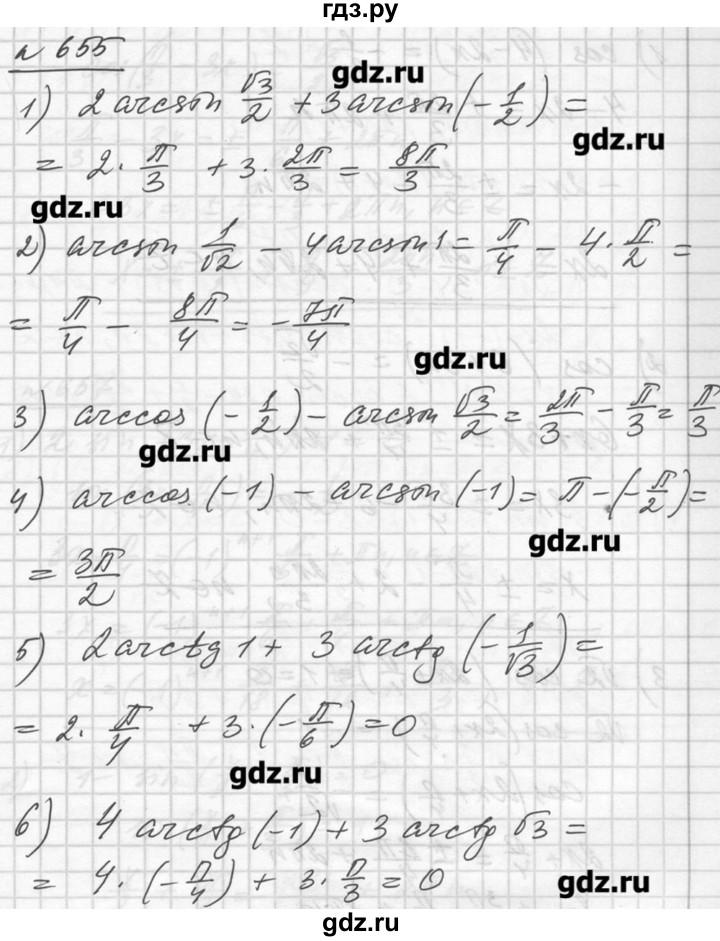 гдз.ру
№ 655
gdz.ru
1) 2 arcsin √3/2 + 3 arcsin (-1/2) =
gdz.ru
= 2·π/3 + 3·2π/3 = 8π/3
gdz.ru
2) arcsin 1/√2 - 4 arcsin 1 = π/4 - 4·π/2 =
= π/4 - 8π/4 = -7π/4
gdz.ru
3) arccos (-1/2) - arcsin √3/2 = 2π/3 - π/3 = π/3
gdz.ru
4) arccos (-1) - arcsin (-1) = π - (-π/2) =
gdz.ru
= 3π/2
5) 2 arctg 1 + 3 arctg (-1/√3) =
= 2·π/4 + 3·(-π/6) = 0
gdz.ru
6) 4 arctg (-1) + 3 arctg √3 =
= 4·(-π/4) + 3·π/3 = 0
gdz.ru
gdz.ru